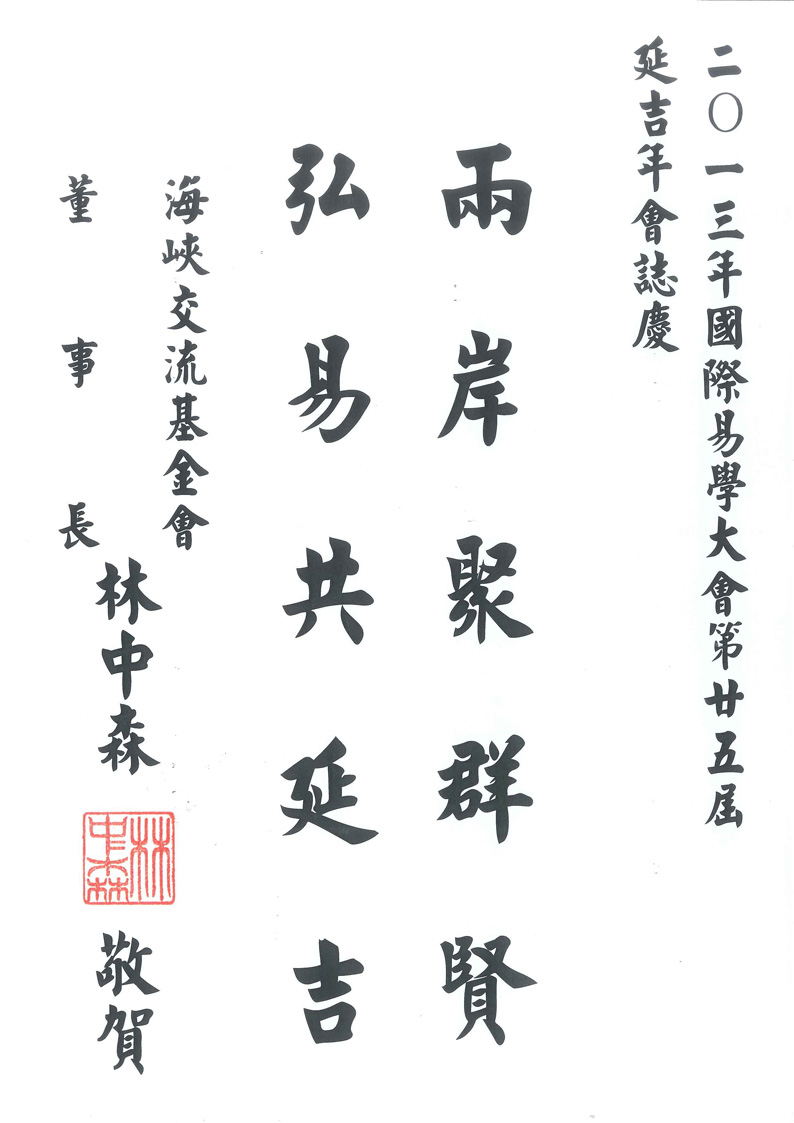 二〇一三年國際易學大會第廿五屆
延吉年會誌慶
兩岸聚群賢
弘易共延吉
海峽交流基金會
董事長
林中森
林中森
敬賀